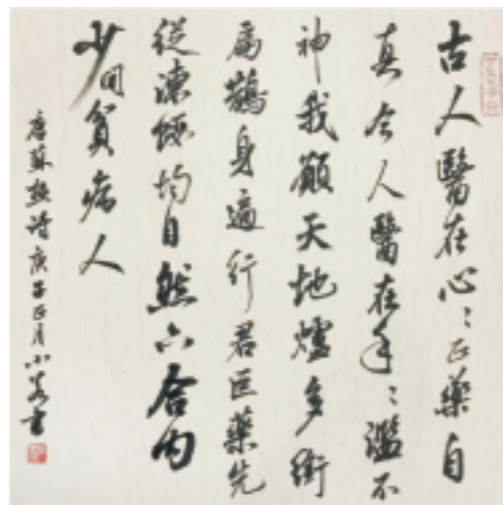 古人醫在心〻正藥自
真今人醫在手〻濫不
神我願天地爐多銜
扁鵲身遍行君臣藥先
從凍餒均自然六合內
少聞貧病人
唐蘇拯詩庚子正月小書